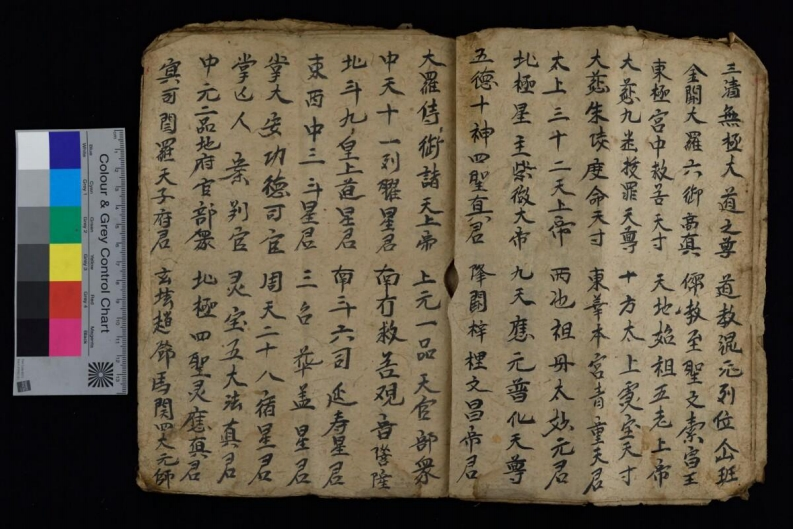 三清無極大道之尊 道教混元列位仙班
金闕大羅六御高真 儒教至聖之素富王
東極宮中救苦天寸 天地始祖五老上帝
大慈九炁拔罪天尊 十方太上灵宝天寸
大慈朱陵度命天寸 東華本宮青童天君
太上三十二天上帝 兩儿祖母太妙元君
北極星主紫微大帝 九天應元普化天尊
五德十神四聖真君 降闕梓橖文昌帝君
大羅侍御諸天上帝 上元一品天官部衆
中天十一列曜星君 南方救苦观音
北斗九皇上道星君 南斗六司延寿星君
東西中三斗星君 三台華盖星君
掌大安功德可官 周天二十八宿星君
掌亾人案判官 灵宝五大法真君
中元二品地府官部衆 北極四聖灵應真君
冥司閻羅天子府君 玄壇趙鄧馬関四大元帅
Colour & Grey Control Chart
Blue
Cyan
Green
Yellow
Red
Magenta
White
Grey 1
Grey 2
Grey 3
Grey 4
Black